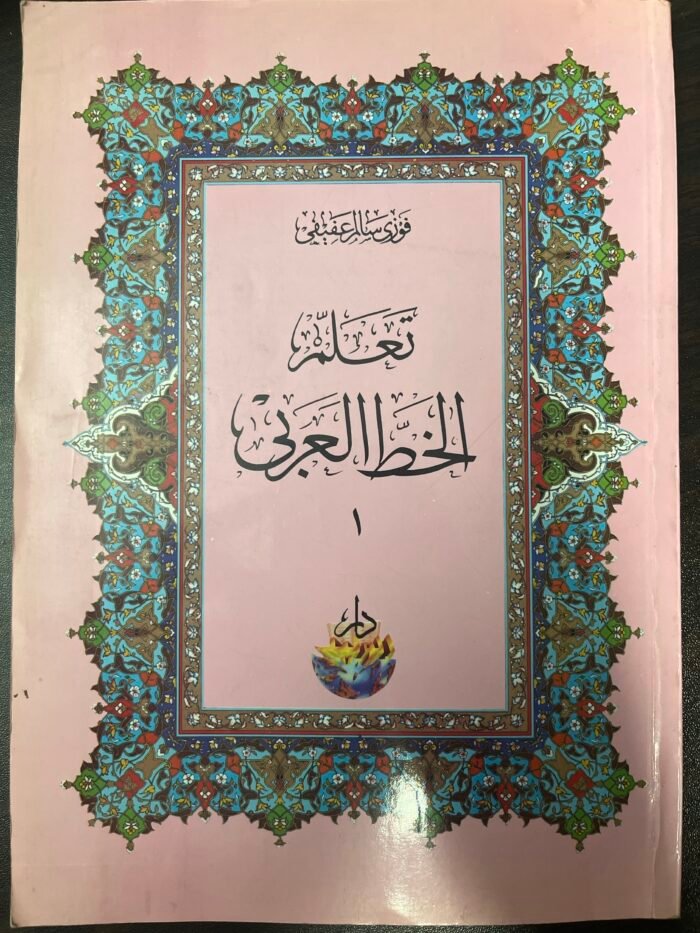 فوزي سالم عفيفي
تعلّم
الخطّ العربي
١
دار